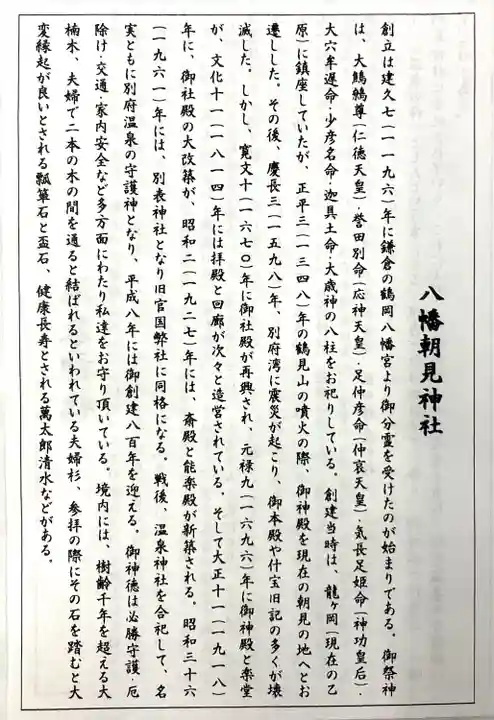 八幡朝見神社
創立は建久七(一一九六)年に鎌倉の鶴岡八幡宮より御分霊を受けたのが始まりである。御祭神
は、大鷦鷯尊(仁徳天皇)・誉田別命(応神天皇)・足仲彦命(仲哀天皇)・気長足姫命(神功皇后)・
大六牟遅命・少彦名命・迦具土命・大歳神の八柱をお祀りしている。創建当時は、龍ヶ岡(現在の乙
原)に鎮座していたが、正平三(一三四八)年の鶴見山の噴火の際、御神殿を現在の朝見の地へとお
遷しした。その後、慶長三(一五九八)年、別府湾に震災が起こり、御本殿や什宝旧記の多くが壊
滅した。しかし、寛文十(一六七〇)年に御社殿が再興され、元禄九(一六九六)年に御神殿と楽堂
が、文化十一(一八一四)年には拝殿と回廊が次々と造営されている。そして大正十一(一九一八)
年に、御社殿の大改築が、昭和二(一九二七)年には、斎殿と能楽殿が新築される。昭和三十六
(一九六一)年には、別表神社となり旧官国弊社に同格になる。戦後、温泉神社を合祀して、名
実ともに別府温泉の守護神となり、平成八年には御創建八百年を迎える。御神徳は必勝守護・厄
除け・交通・家内安全など多方面にわたり私達をお守り頂いている。境内には、樹齢千年を超える大
楠木、夫婦で二本の木の間を通ると結ばれるといわれている夫婦杉、参拝の際にその石を踏むと大
変縁起が良いとされる瓢箪石と盃石、健康長寿とされる萬太郎清水などがある。